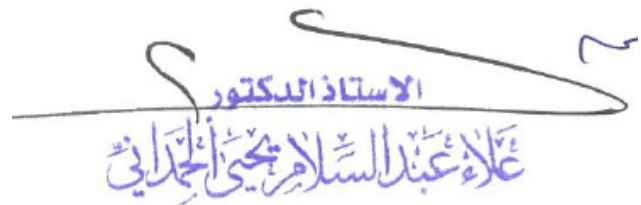 الاستاذ الدكتور
علاء عبد السلام يحيى الحمداني